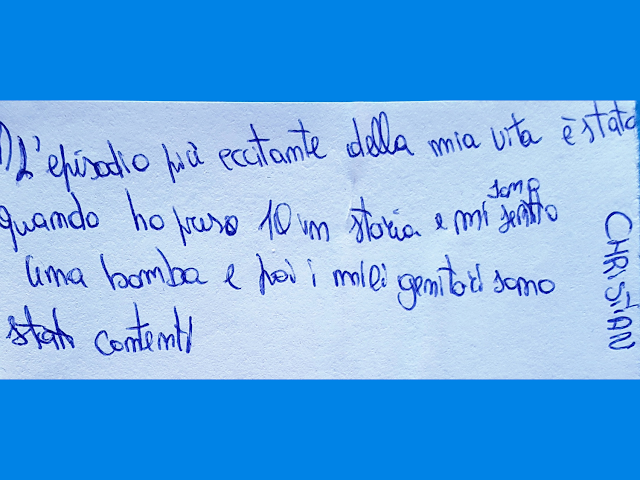 1) L'episodio più eccitante della mia vita è stato
quando ho preso 10 in storia e mi sono sentito
una bomba e poi i miei genitori sono
stati contenti
CHRISTIAN